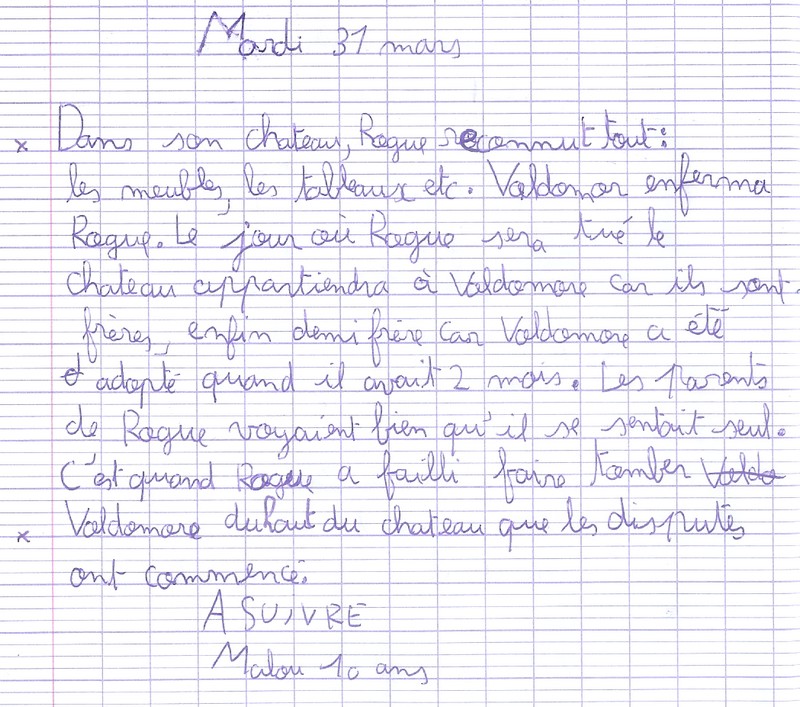 Mardi 31 mars
x Dans son chateau, Rogue reconnut tout:
les meubles, les tableaux etc. Valdomor enferma
Rogue. Le jour où Rogue sera tué le
chateau appartiendra à Valdomore car ils sont
frères, enfin demi frère car Valdomore a été
adopté quand il avait 2 mois. Les parents
de Rogue voyaient bien qu'il se sentait seul.
C'est quand Rogue a failli faire tomber Valdo
x Valdomore duhaut du chateau que les disputes
ont commencé.
A SUIVRE
Malou 10 ans